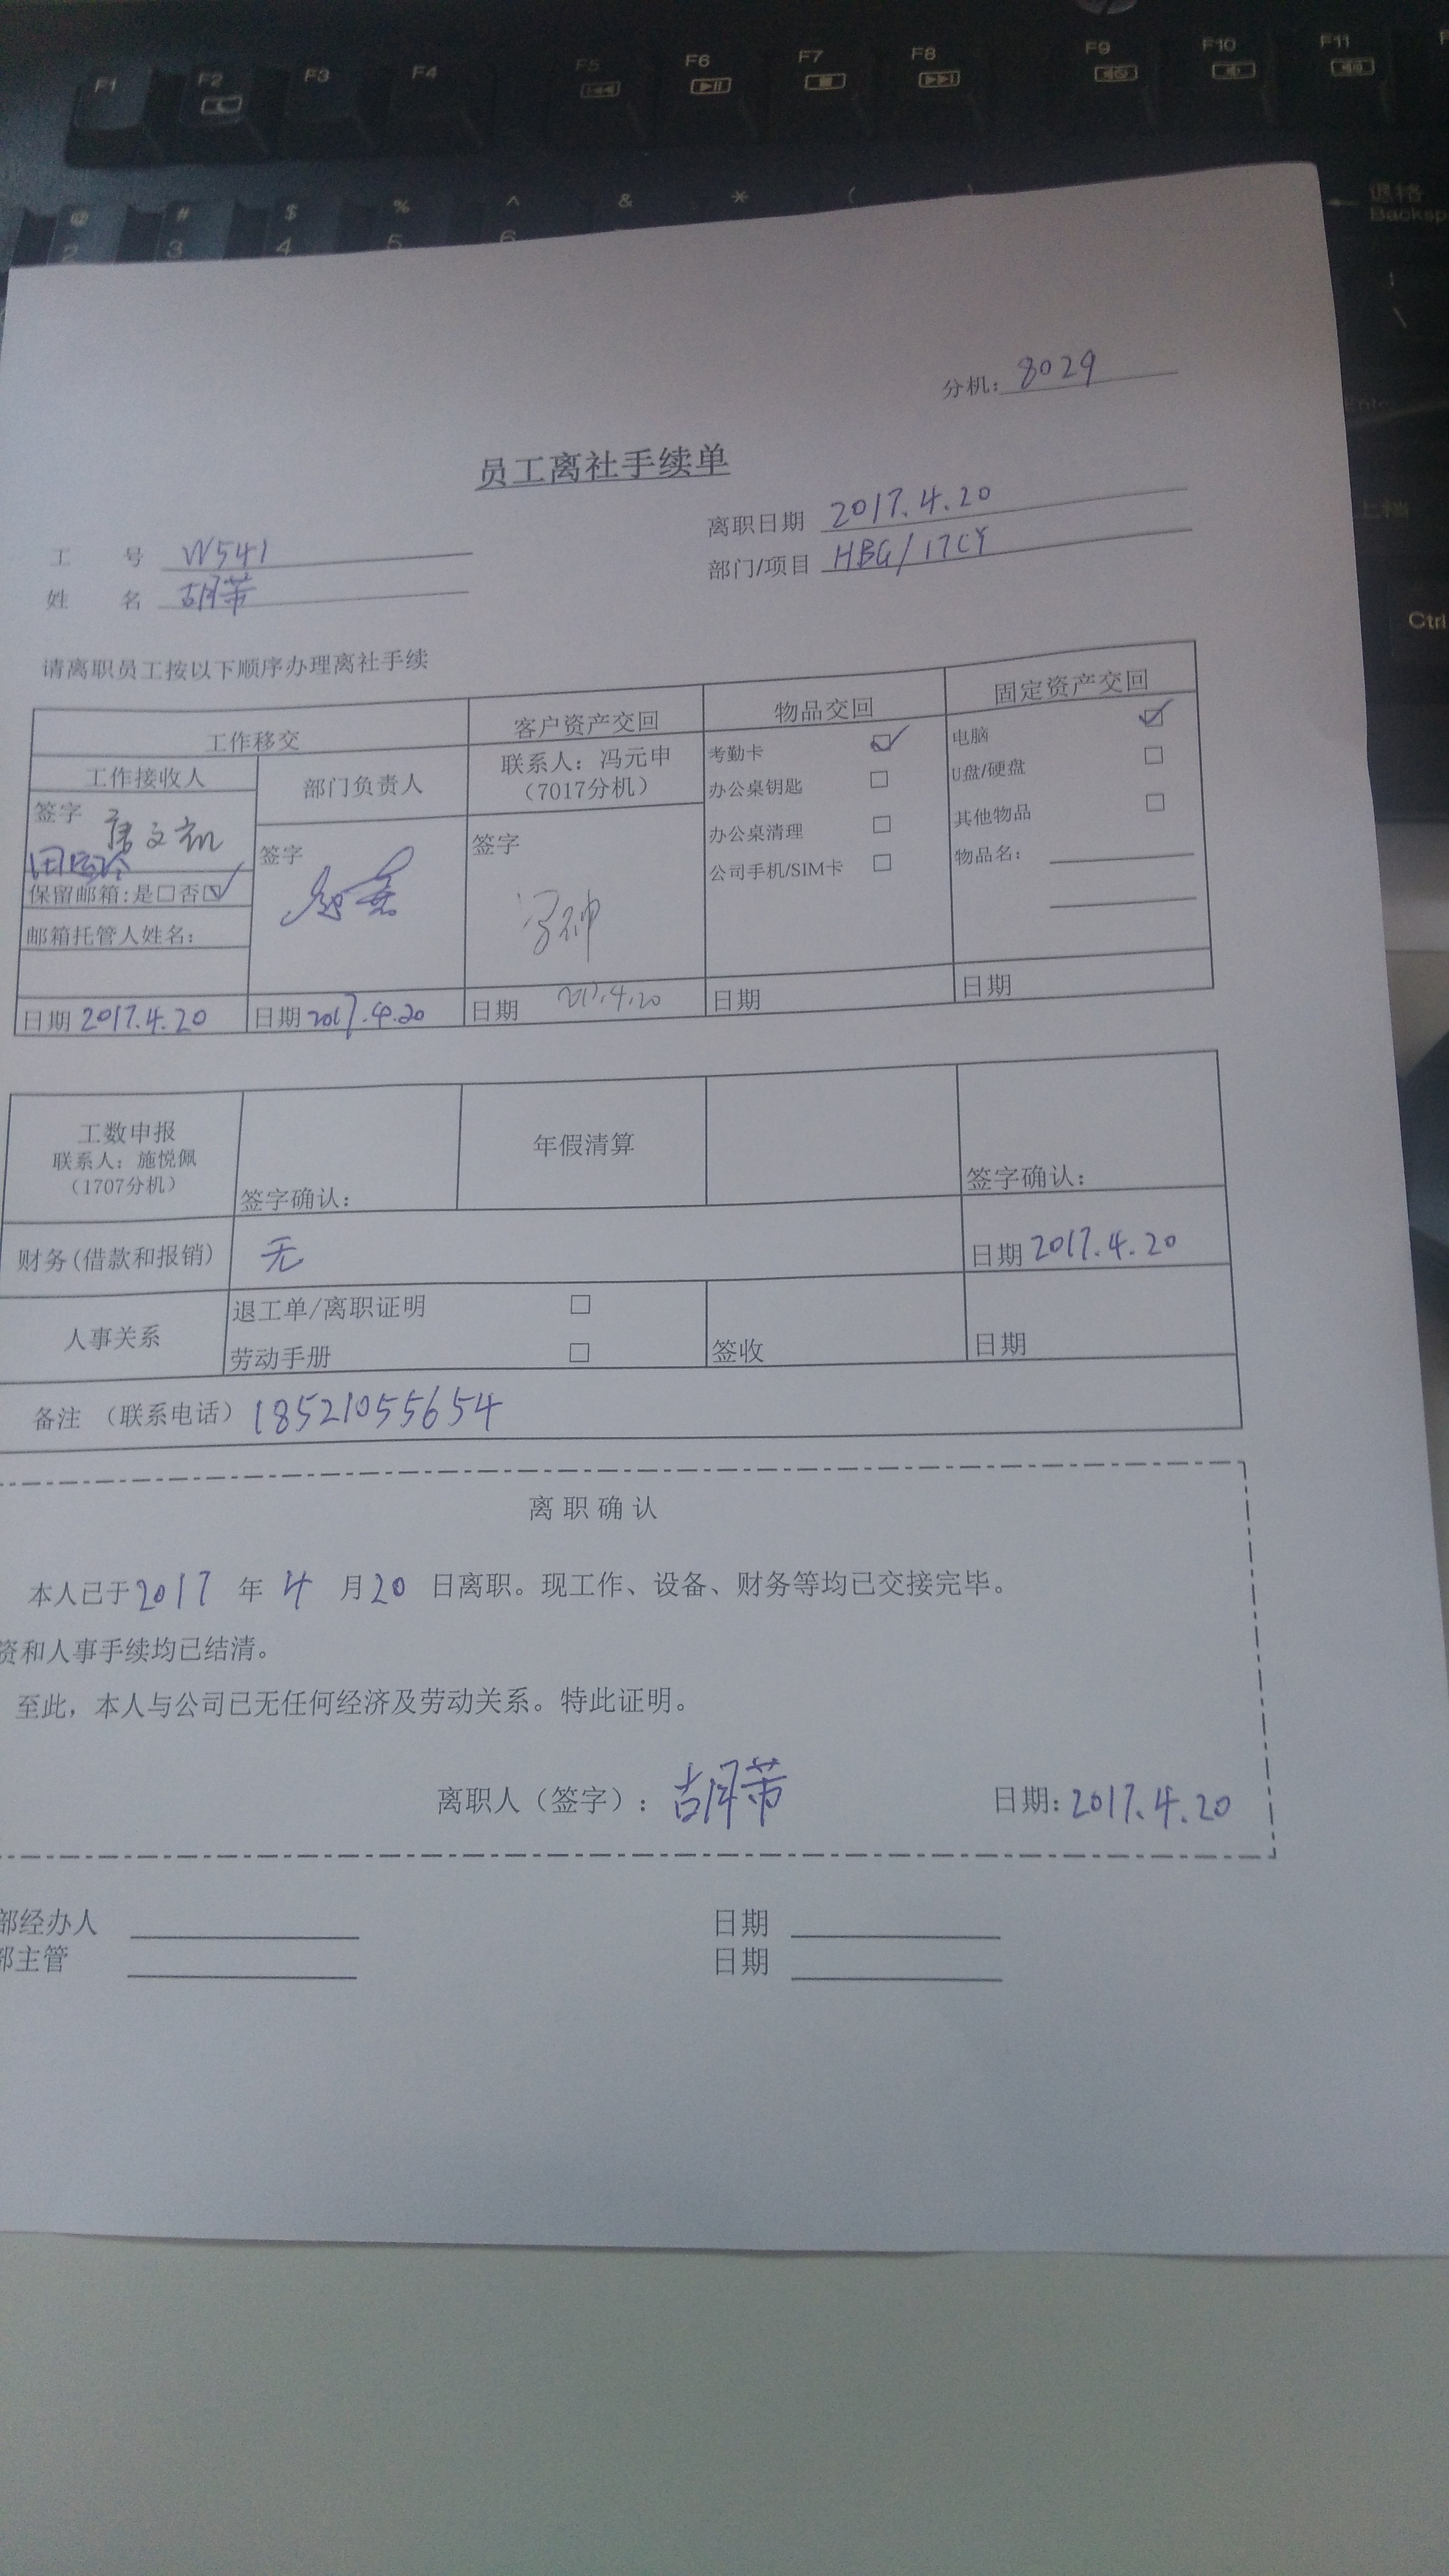 F1 F2 F3 F4 F5 F6 F7 F8 F9 F10 F11
@ # $ % ^ & * (
2 3 4 5 6
退格
Backsp
上档
Ctrl
分机: 8029
员工离社手续单
离职日期 2017.4.20
工 号 W541
部门/项目 HBG/17CY
姓 名 胡芾
请离职员工按以下顺序办理离社手续
工作移交 客户资产交回 物品交回 固定资产交回
工作接收人 部门负责人 联系人：冯元申
（7017分机）
签字
签字
签字
保留邮箱:是□否☑
邮箱托管人姓名:
考勤卡 ☑
办公桌钥匙 □
办公桌清理 □
公司手机/SIM卡 □
电脑 ☑
U盘/硬盘 □
其他物品 □
物品名:
日期 2017.4.20 日期 2017.4.20 日期 2017.4.20 日期 日期
工数申报
联系人：施悦佩
（1707分机）
签字确认： 年假清算 签字确认：
财务(借款和报销) 无 日期 2017.4.20
人事关系 退工单/离职证明 □
劳动手册 □ 签收 日期
备注 （联系电话）18521055654
离 职 确 认
本人已于2017 年 4 月20 日离职。现工作、设备、财务等均已交接完毕。
资和人事手续均已结清。
至此，本人与公司已无任何经济及劳动关系。特此证明。
离职人（签字）：胡芾 日期: 2017.4.20
部经办人 日期
部主管 日期